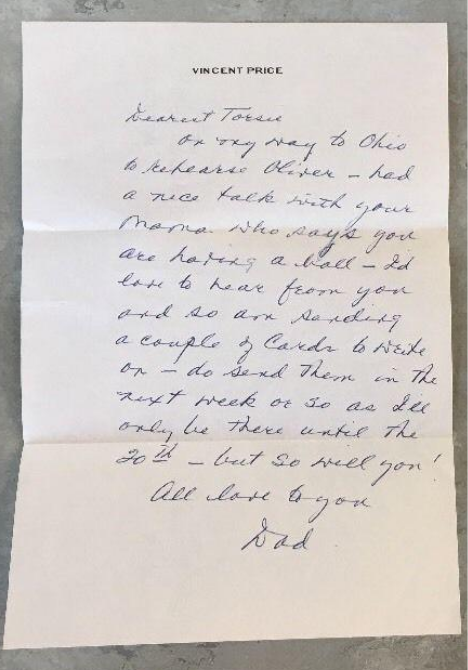 VINCENT PRICE
Dearest Torsie
on my way to Ohio
to rehearse Oliver – had
a nice talk with your
Mama who says you
are having a ball – I'd
love to hear from you
and so am sending
a couple of Cards to write
on – do send them in the
next week or so as I'll
only be there until the
20th – but so will you!
All love to you
Dad